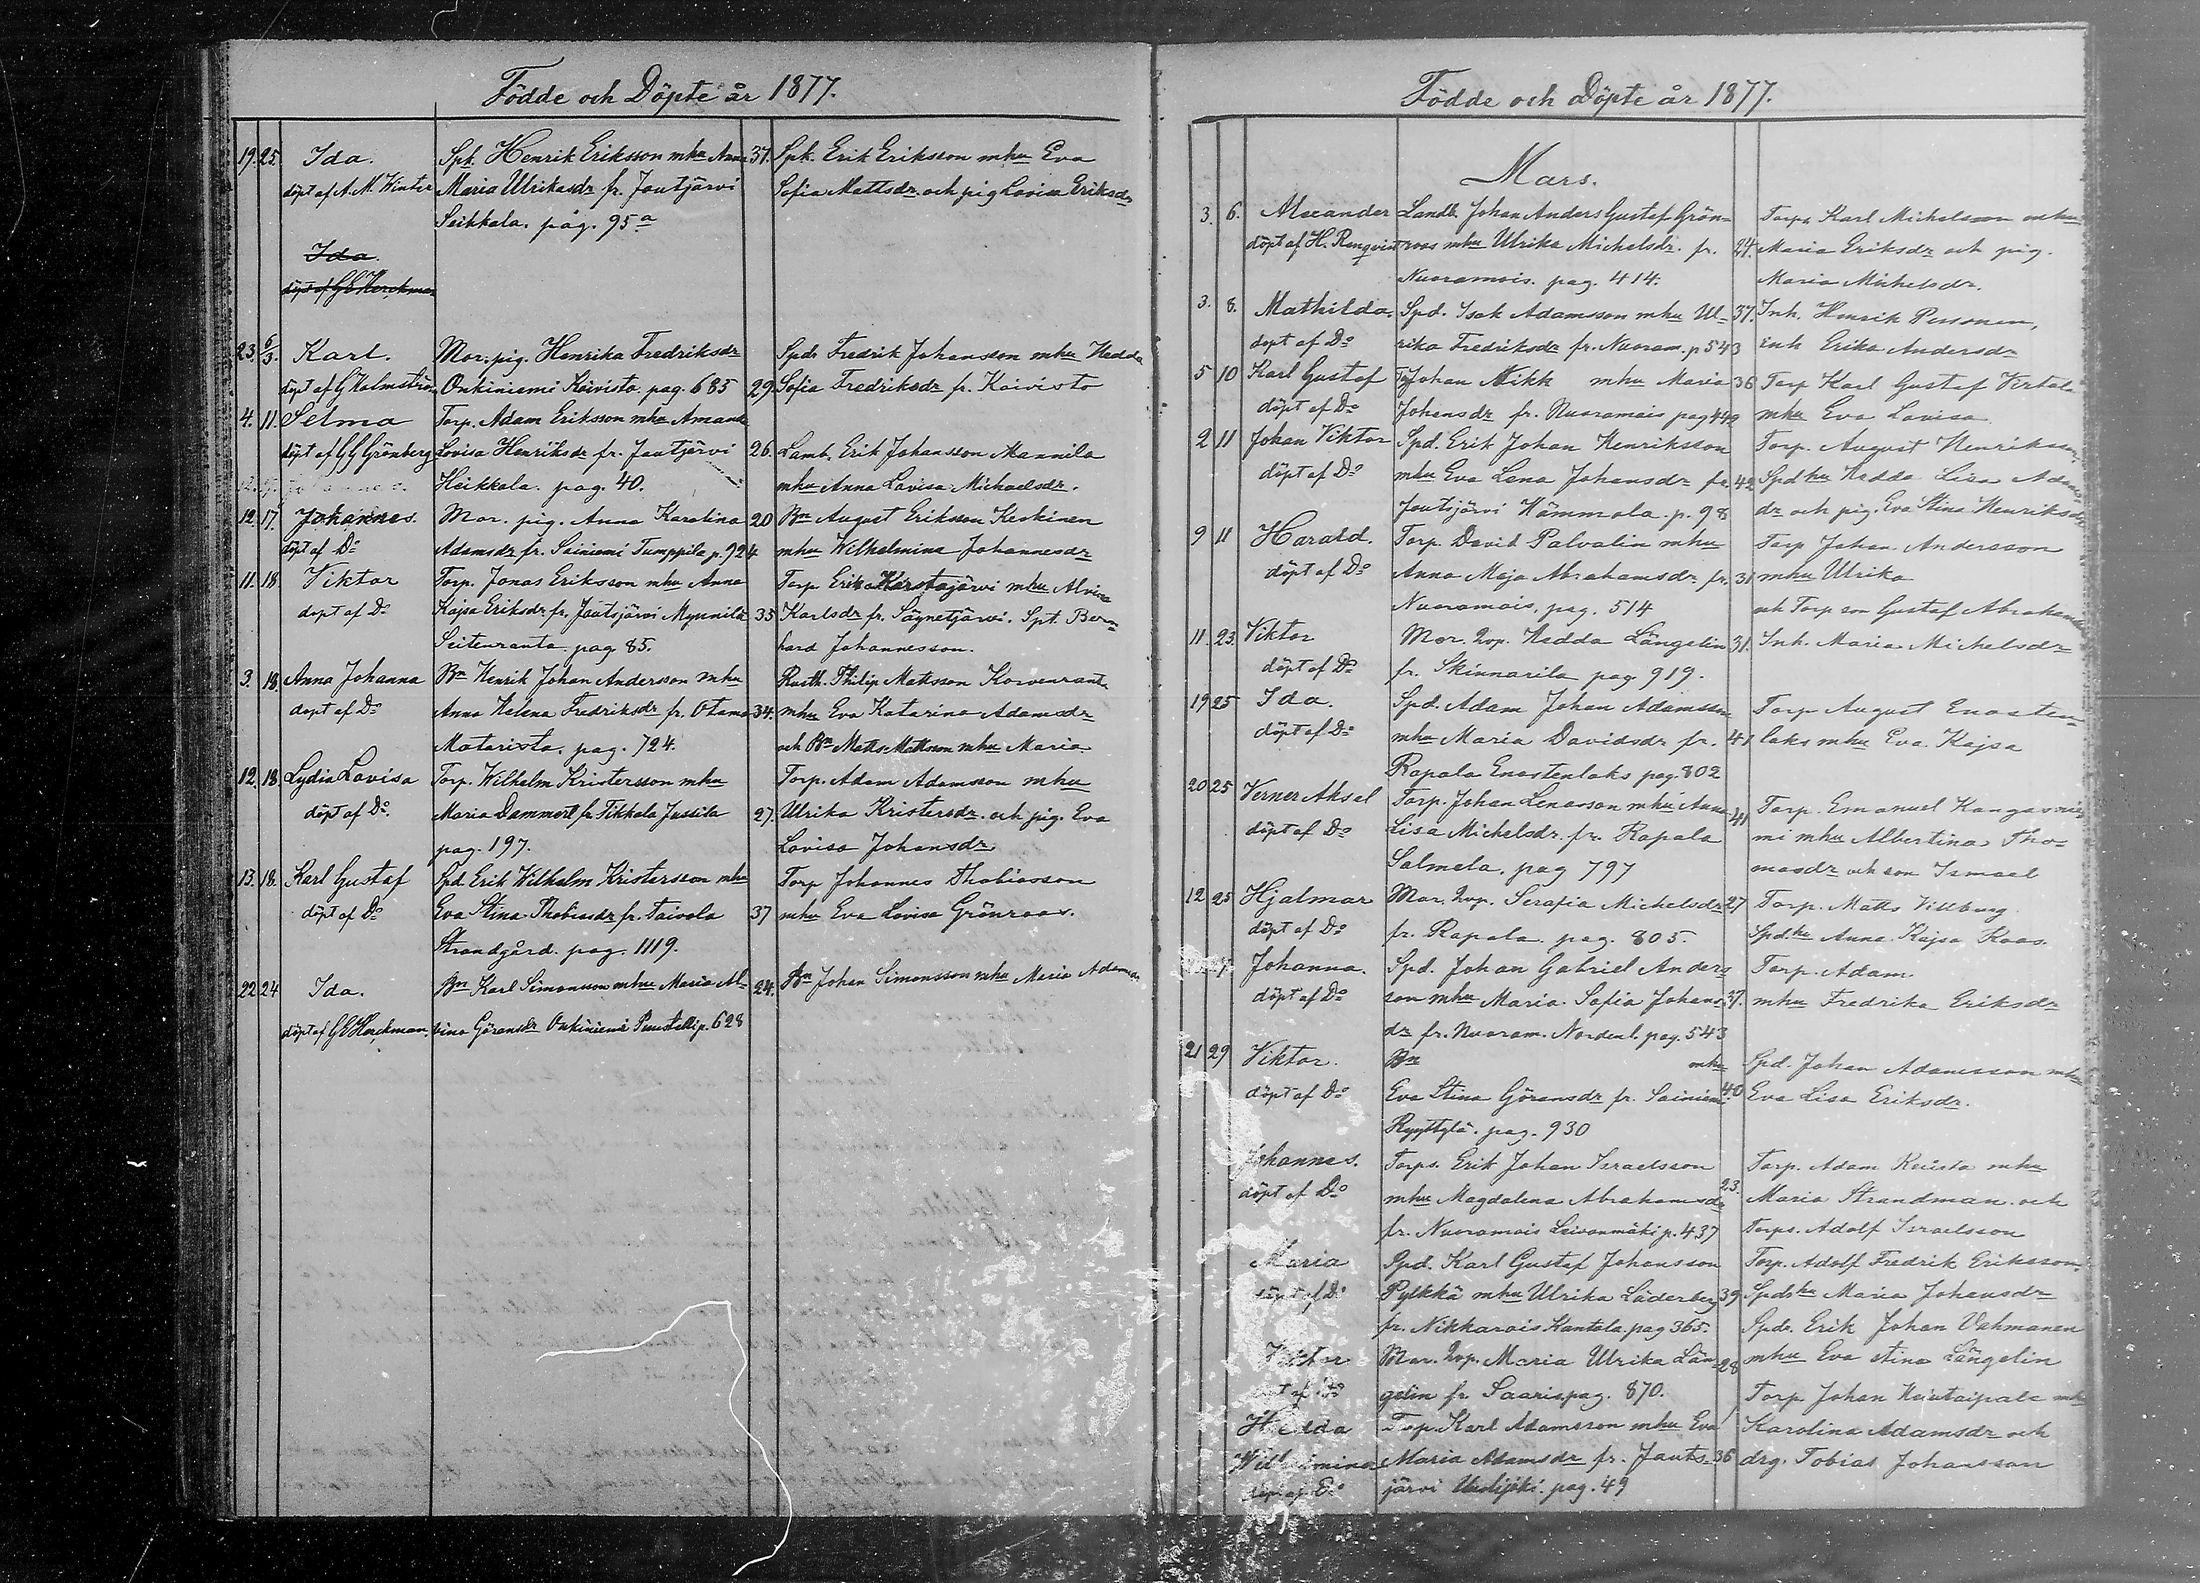 Födde och Döpte år 1877.
19. 25. Ida. Spk. Henrik Eriksson mhu Anna 37. Spk. Erik Eriksson mhu Eva
döpt af A. M. Winter Maria Ulrikasdr fr. Joutjärvi Sofia Mattsdr och pig Lovisa Eriksdr
Seikkala. pag. 95a
Ida.
döpt af G E Herckman
23. 6/3. Karl. Mor. pig. Henrika Fredriksdr Spdr Fredrik Johansson mhu Hedda
döpt af G Holmström Onkiniemi Koivisto. pag. 685 29. Sofia Fredriksdr fr. Koivisto
4. 11. Selma Torp. Adam Eriksson mhu Amanda
döpt af G G Grönberg Lovisa Henriksdr fr. Joutjärvi 26. Lamb. Erik Johansson Mannila
Heikkala. pag. 40. mhu Anna Lovisa Michaelsdr.
12. 17. Johannes. Mor. pig. Anna Karolina 20 Bn August Eriksson Keskinen
döpt af Do Adamsdr fr. Sainiemi Tumppila p. 924 mhu Wilhelmina Johannesdr
11. 18. Viktor Torp. Jonas Eriksson mhu Anna Torp. Erik Kerstajärvi mhu Alvina
döpt af Do Kajsa Eriksdr fr. Joutsjärvi Myunilä 35 Karlsdr fr. Säynetjärvi. Spt. Bern-
Seitenranta pag 85. hard Johannesson.
3. 18. Anna Johanna Bn Henrik Johan Andersson mhu Rusth. Philip Mattsson Korvenranta
döpt af Do Anna Helena Fredriksdr fr. Otamo 34. mhu Eva Katarina Adamsdr
Matarista. pag. 724. och Bn Matts Mattsson mhu Maria
12. 18. Lydia Lovisa Torp. Wilhelm Kristersson mhu Torp. Adam Adamsson mhu
döpt af Do. Maria Dammert fr. Tikkala Jussila 27. Ulrika Kristersdr. och pig. Eva
pag. 197. Lovisa Johansdr
13. 18. Karl Gustaf Spd Erik Wilhelm Kristersson mhu Torp Johannes Thobiasson
döpt af Do Eva Stina Thobiasdr fr. Taivola 37 mhu Eva Lovisa Grönroos.
Strandgård. pag. 1119.
22 24 Ida. Bn Karl Simonsson mhu Maria Al- 24. Bn Johan Simonsson mhu Maria Adamsdr
döpt af G E Herckman. vina Göransdr Onkiniemi Puustelli p. 628
Födde och Döpte år 1877.
Mars.
3. 6. Alexander Landb. Johan Anders Gustaf Grön- Torp. Karl Michelsson mhu
döpt af H. Renqvist roos mhu Ulrika Michelsdr. fr. 24. Maria Eriksdr och pig.
Nuoramois. pag. 414. Maria Michelsdr.
3. 8. Mathilda. Spd. Isak Adamsson mhu Ul- 37. Inh. Henrik Pessonen,
döpt af Do rika Fredriksdr fr. Nuoram. p 543 inh Erika Andersdr
5 10 Karl Gustaf Johan Nikk mhu Maria 36 Torp Karl Gustaf Virtala
döpt af Do Johansdr fr. Nuoramois pag 449 mhu Eva Lovisa
2 11 Johan Viktor Spd. Erik Johan Henriksson Torp. August Henriksson,
döpt af Do mhu Eva Lena Johansdr fr. 42 Spd hu Hedda Lisa Adams-
Joutsjärvi Hämmola. p. 98 dr och pig. Eva Stina Henriksdr
9 11 Harald. Torp. David Palvalin mhu Torp Johan Andersson
döpt af Do Anna Maja Abrahamsdr fr. 31 mhu Ulrika
Nuoramois, pag. 514 och Torp son Gustaf Abrahamsson
11. 23. Viktor Mor. Qvp. Hedda Långelin 31. Inh. Maria Michelsdr
döpt af Do fr. Skinnarila pag 919.
19 25 Ida. Spd. Adam Johan Adamsson Torp August Enosten-
döpt af Do mhu Maria Davidsdr fr. 41 laks mhu Eva Kajsa
Rapala Enostenlaks pag. 802
20 25 Verner Aksel Torp. Johan Lenasson mhu Anna 41 Torp. Emanuel Kangasnie-
döpt af Do Lisa Michelsdr fr. Rapala mi mhu Albertina Tho-
Salmela. pag 797 masdr och son Ismael
12 25 Hjalmar Mor. Qvp. Serafia Michelsdr 27 Torp. Matts Villberg
döpt af Do fr. Rapala. pag. 805. Spd.hu Anna Kajsa Roos.
Johanna. Spd. Johan Gabriel Anders Torp. Adam
döpt af Do son mhu Maria Sofia Johans- 37. mhu Fredrika Eriksdr
dr fr. Nuoram. Nordenl. pag. 543
21 29 Viktor. Bn mhu Spd. Johan Adamsson mhu
döpt af Do Eva Stina Göransdr fr. Sainiemi 40 Eva Lisa Eriksdr.
Ryyttylä. pag. 930
Johannes. Torps. Erik Johan Israelsson Torp. Adam mhu
döpt af Do mhu Magdalena Abrahamsdr 23. Maria Strandman och
fr. Nuoramois Leivonmäki p. 437 Torps. Adolf Israelsson
Maria Spd. Karl Gustaf Johansson Torp. Adolf Fredrik Eriksson,
döpt af Do Pylkkä mhu Ulrika Läderberg 39 Spdshu Maria Johansdr
fr. Nikkarois Kantola pag 365. Spdr. Erik Johan Vehmanen
Viktor Mor. Qvp. Maria Ulrika Lån- 28 mhu Eva Stina Långelin
döpt af Do gelin fr. Saaris pag. 870. Torp Johan mhu
Hedda Torp Karl Adamsson mhu Eva Karolina Adamsdr och
Wilhelmina Maria Adamsdr fr. Jouts- 36 drg. Tobias Johansson
döpt af Do järvi pag. 49